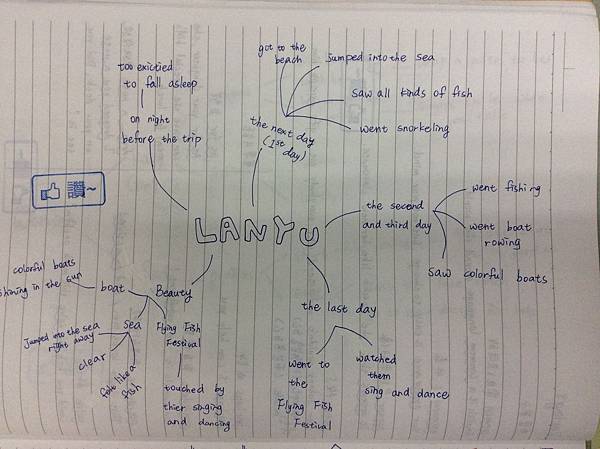 too exictied
to fall asleep
on night
before the trip
got to the
beach
Jumped into the sea
saw all kinds of fish
went snorkeling
the next day
(1st
day)
讚~
LANYU
the second
and third day
went fishing
went boat
rowing
saw colorful boats
colorful boats
shining in the sun
boat
Beauty
sea
Jumped into the sea
right away
clear
felt like a
fish
Flying Fish
Festival
touched by
thier singing
and dancing
the last day
went to
the
Flying Fish
Festival
watched
them
sing and dance